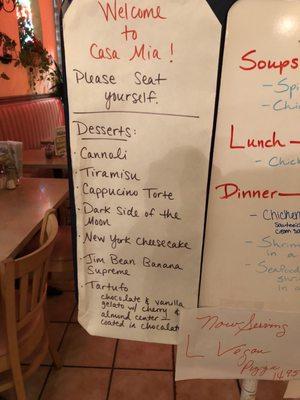 Welcome
to
Casa Mia!
Please Seat
yourself.
Desserts:
· Cannoli
· Tiramisu
· Cappucino Torte
· Dark Side of the
Moon
· New York Cheesecake
· Jim Bean Banana
Supreme
· Tartufo
chocolate & vanilla
gelato w/ cherry &
almond center —
coated in chocolate
Soups
- Spi
- Chi
Lunch —
- Chick
Dinner —
- Chicken
sauteed
cream sa
- Shrim
in a
- Seafoo
shri
in a
Now Serving
Vegan
Pizza
14.95